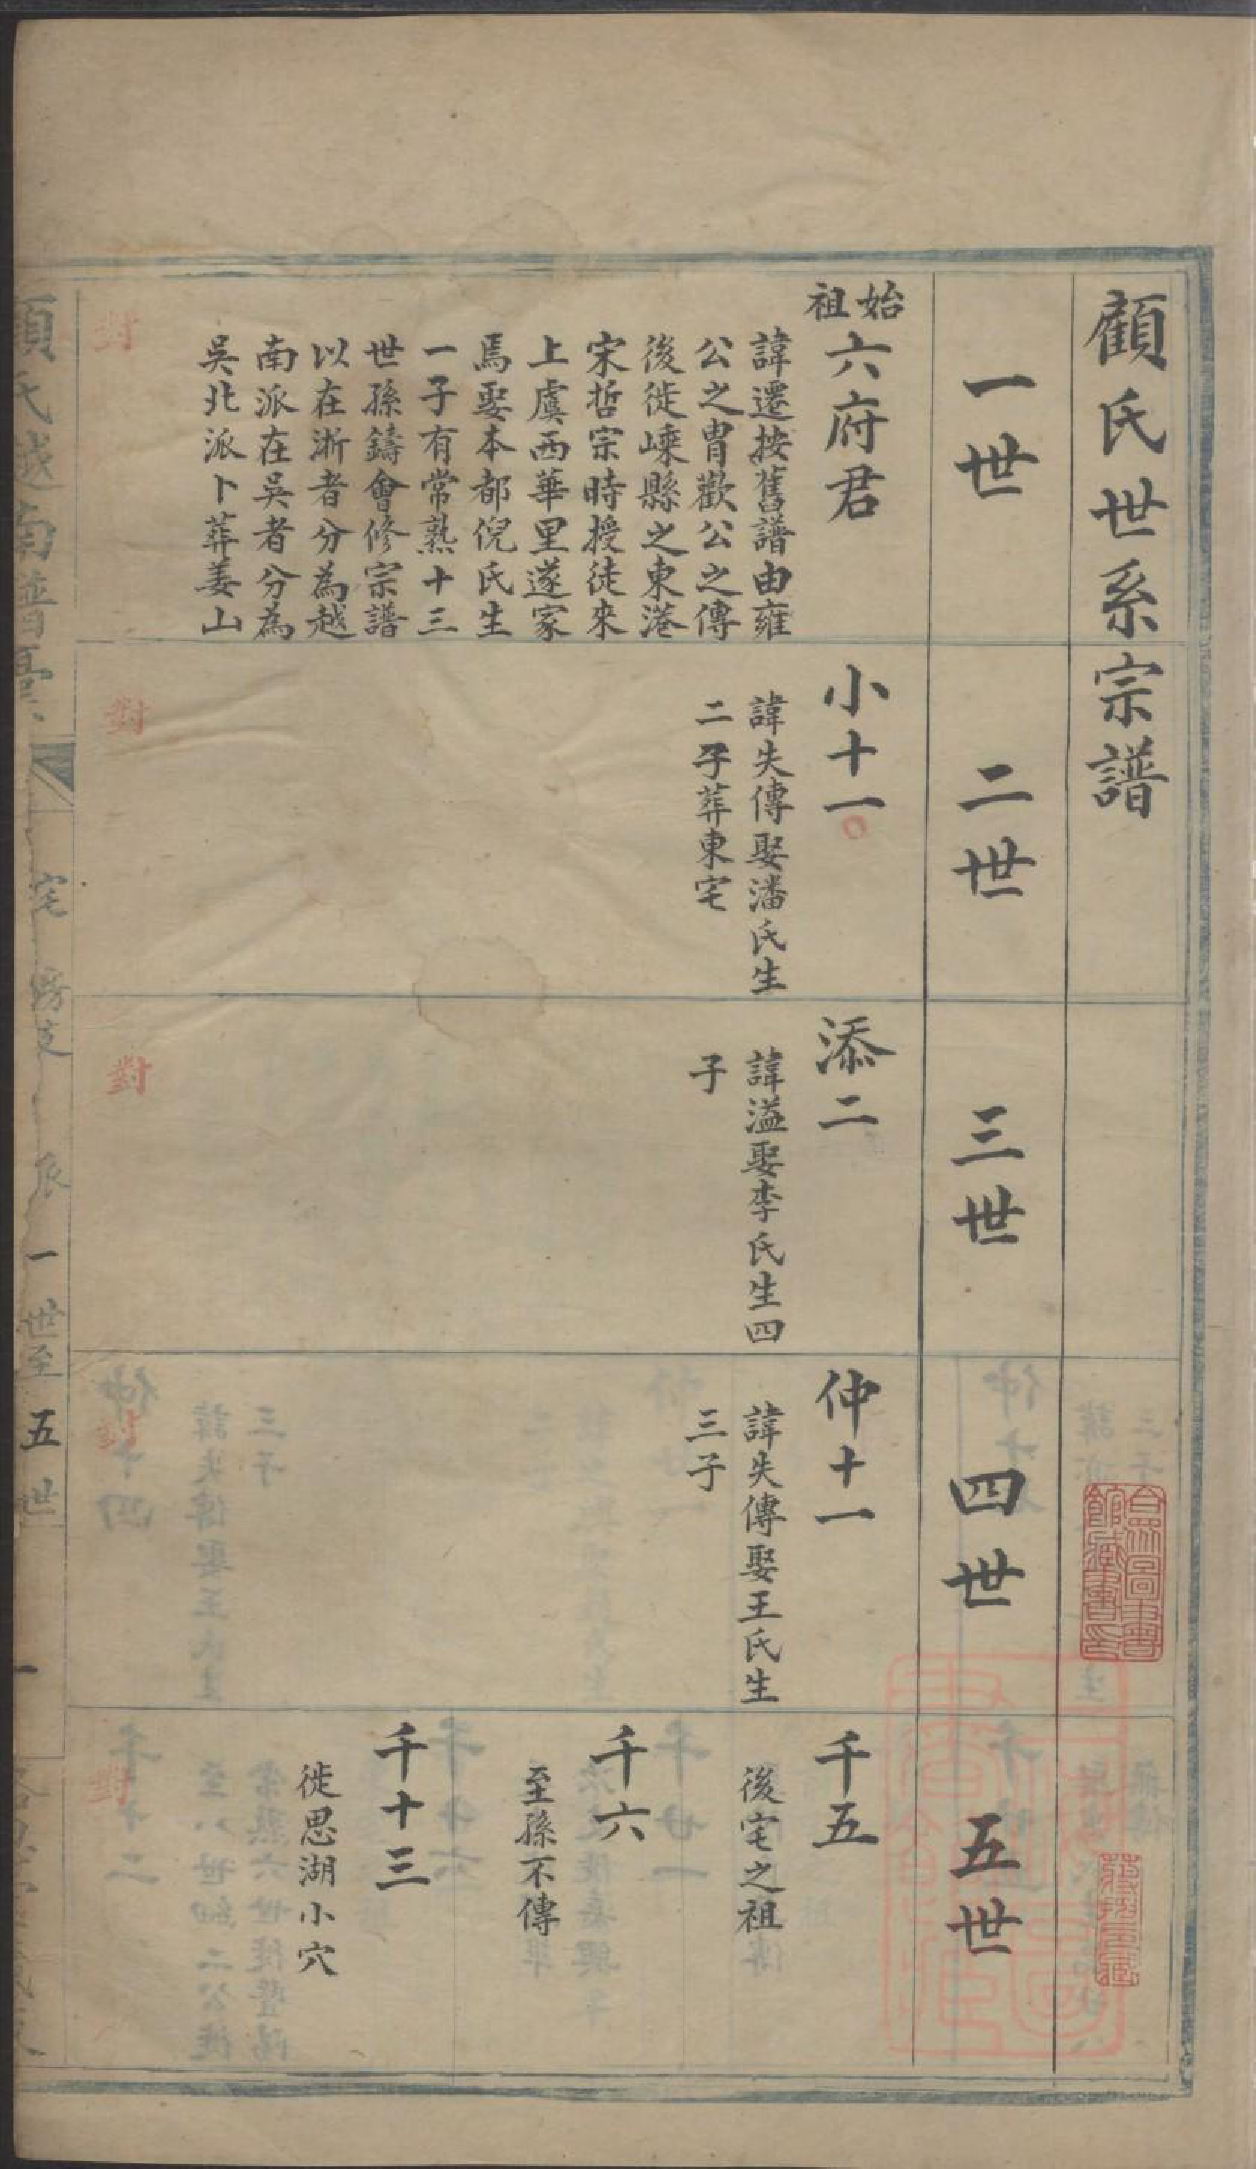 顧氏世系宗譜
一世
二世
三世
四世
五世
始祖
六府君
諱遷按舊譜由雍
公之胄歡公之傳
後徙嵊縣之東港
宋哲宗時授徒來
上虞西華里遂家
焉娶本都倪氏生
一子有常熟十三
世孫鑄會修宗譜
以在浙者分為越
南派在吳者分為
吳北派卜葬姜山
對
小十一
諱失傳娶潘氏生
二子葬東宅
對
添二
諱溢娶李氏生四
子
對
仲十一
諱失傳娶王氏生
三子
對
千五
後宅之祖
千六
至孫不傳
千十三
徙思湖小穴
對
顧氏越南譜
宅 房支 派 一世至五世
一